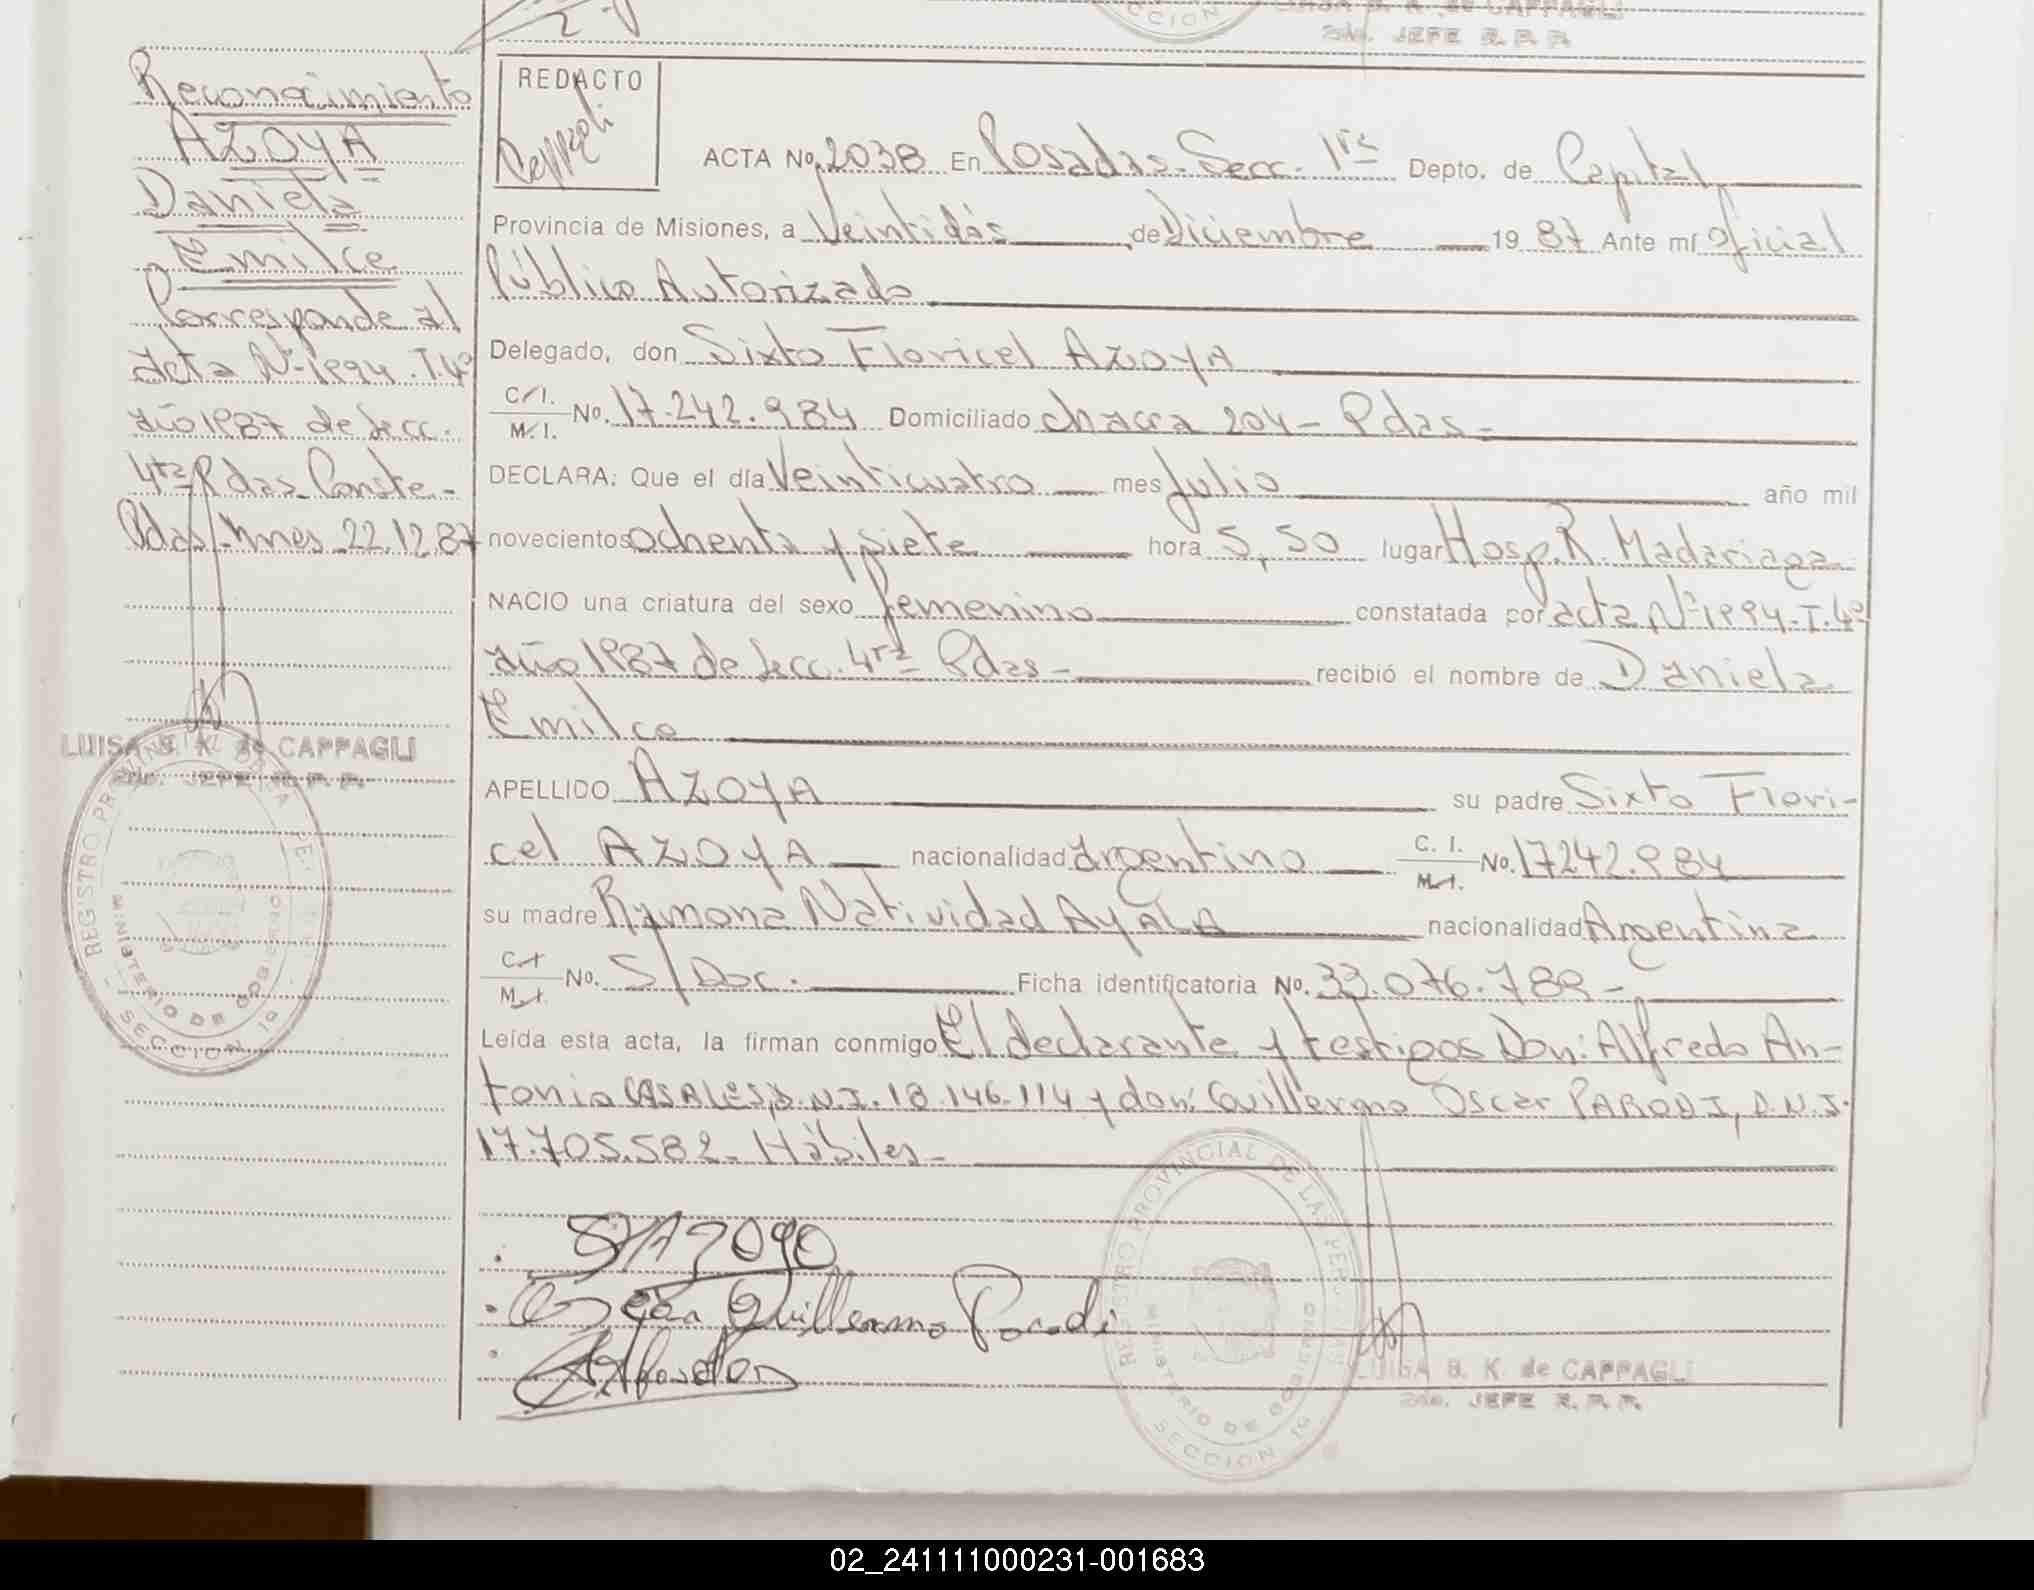 CCION
LUISA B. K. de CAPPAGLI
2do. JEFE R. P. P.
Reconocimiento
AZOYA
Daniela
Emilce
Corresponde al
acta Nº 1994. T. 4º
año 1987 de Secc.
4ta Pdas. Conste.-
Pdas. Mnes 22.12.87
LUISA B. K. de CAPPAGLI
2do. JEFE R. P. P.
REGISTRO PROVINCIAL DE LAS PER
MINISTERIO DE GOBIERNO
SECCION 1ª
REDACTO
ACTA No. 2038 En Posadas. Secc. 1ra Depto. de Capital
Provincia de Misiones, a Veintidós de Diciembre 19 87 Ante mí Oficial
Público Autorizado
Delegado, don Sixto Floricel AZOYA
C.I.
M.I. No. 17.242.984 Domiciliado chacra 204 - Pdas -
DECLARA: Que el día Veinticuatro mes Julio año mil
novecientos ochenta y siete hora 5,50 lugar Hosp. R. Madariaga
NACIO una criatura del sexo femenino constatada por acta Nº 1994. T. 4º
año 1987 de Secc. 4ta Pdas - recibió el nombre de Daniela
Emilce
APELLIDO AZOYA su padre Sixto Flori-
cel AZOYA nacionalidad Argentino C. I.
M.I. No. 17242.984
su madre Ramona Natividad AYALA nacionalidad Argentina
C.I
M.I. No. S/Doc. Ficha identificatoria No. 33.076.789 -
Leída esta acta, la firman conmigo El declarante y testigos Don: Alfredo An-
tonio CASALES, D.N.I. 18.146.114 y don: Guillermo Oscar PARODI, D.N.I.
17.705.582 - Hábiles -
Oscar Guillermo Parodi
REGISTRO PROVINCIAL DE LAS PER
MINISTERIO DE GOBIERNO
SECCION 1ª
LUISA B. K. de CAPPAGLI
2do. JEFE R. P. P.
02_241111000231-001683